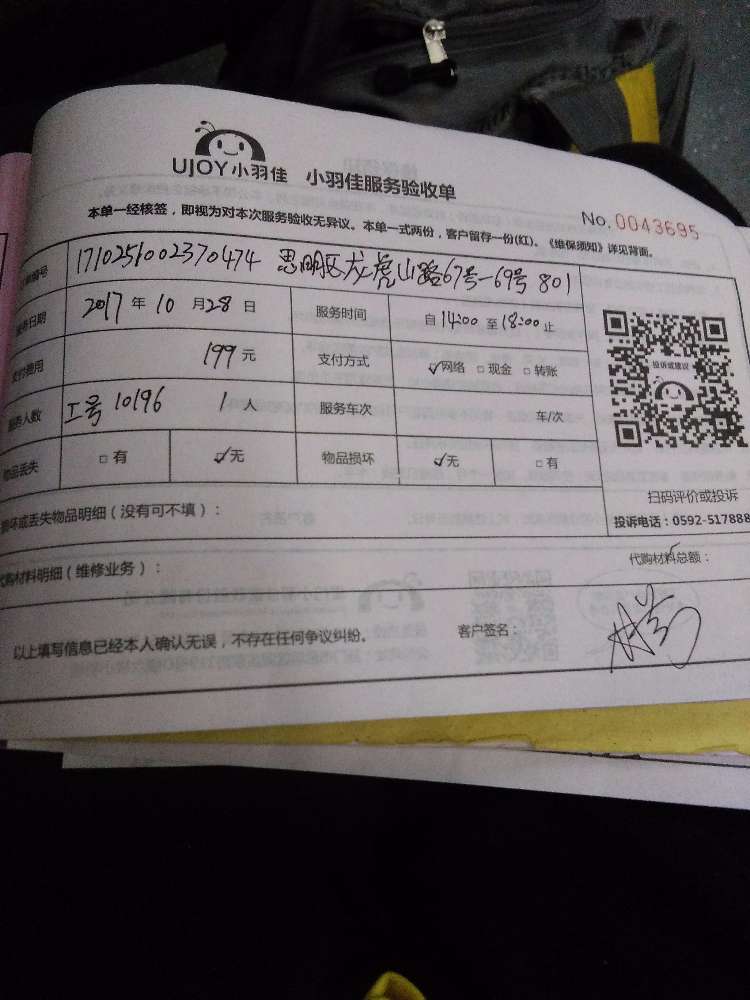 UJOY小羽佳 小羽佳服务验收单
No.0043695
本单一经核签，即视为对本次服务验收无异议。本单一式两份，客户留存一份(红)。《维保须知》详见背面。
编号 1710251002370474 思明区龙虎山路67号-69号 801
服务日期 2017年10月28日 服务时间 自14:00至18:00止
支付费用 199元 支付方式 ☑网络 □现金 □转账
服务人数 工号10196 1人 服务车次 车/次
物品丢失 □有 ☑无 物品损坏 ☑无 □有
投诉或建议
扫码评价或投诉
投诉电话：0592-517888
损坏或丢失物品明细（没有可不填）：
代购材料明细（维修业务）： 代购材料总额：
以上填写信息已经本人确认无误，不存在任何争议纠纷。 客户签名：